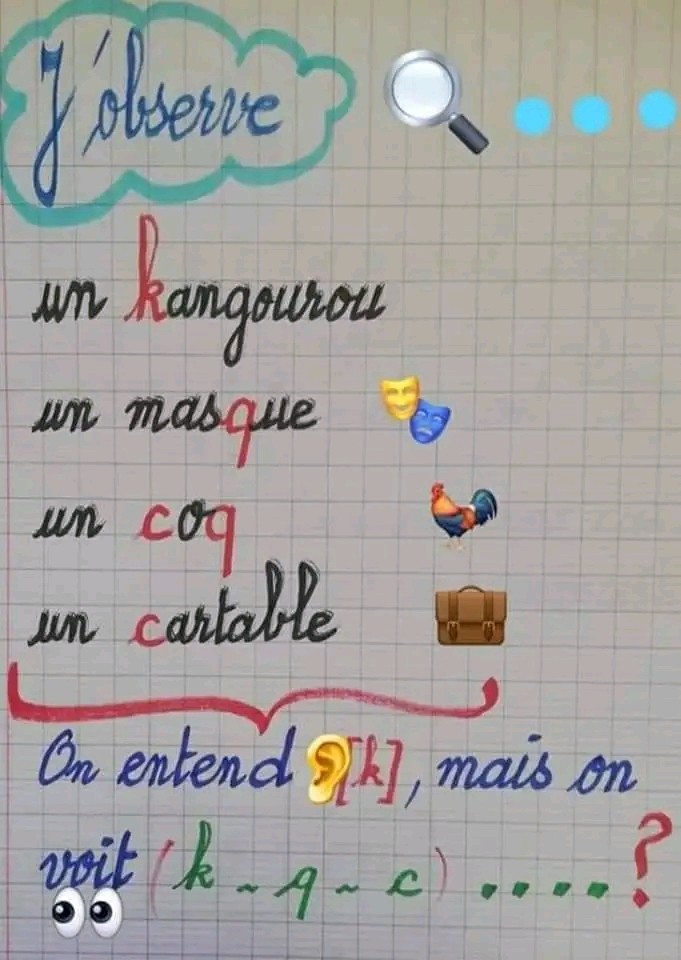 J'observe ...
un kangourou
un masque
un coq
un cartable
On entend [k], mais on
voit (k - q - c) ....?